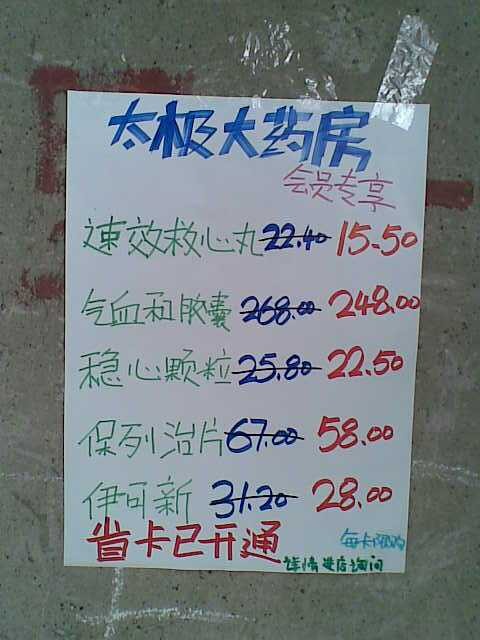 太极大药房
会员专享
速效救心丸 22.40 15.50
气血和胶囊 268.00 248.00
稳心颗粒 25.80 22.50
保列治片 67.00 58.00
伊可新 31.20 28.00
省卡已开通
每卡限购
详情进店询问